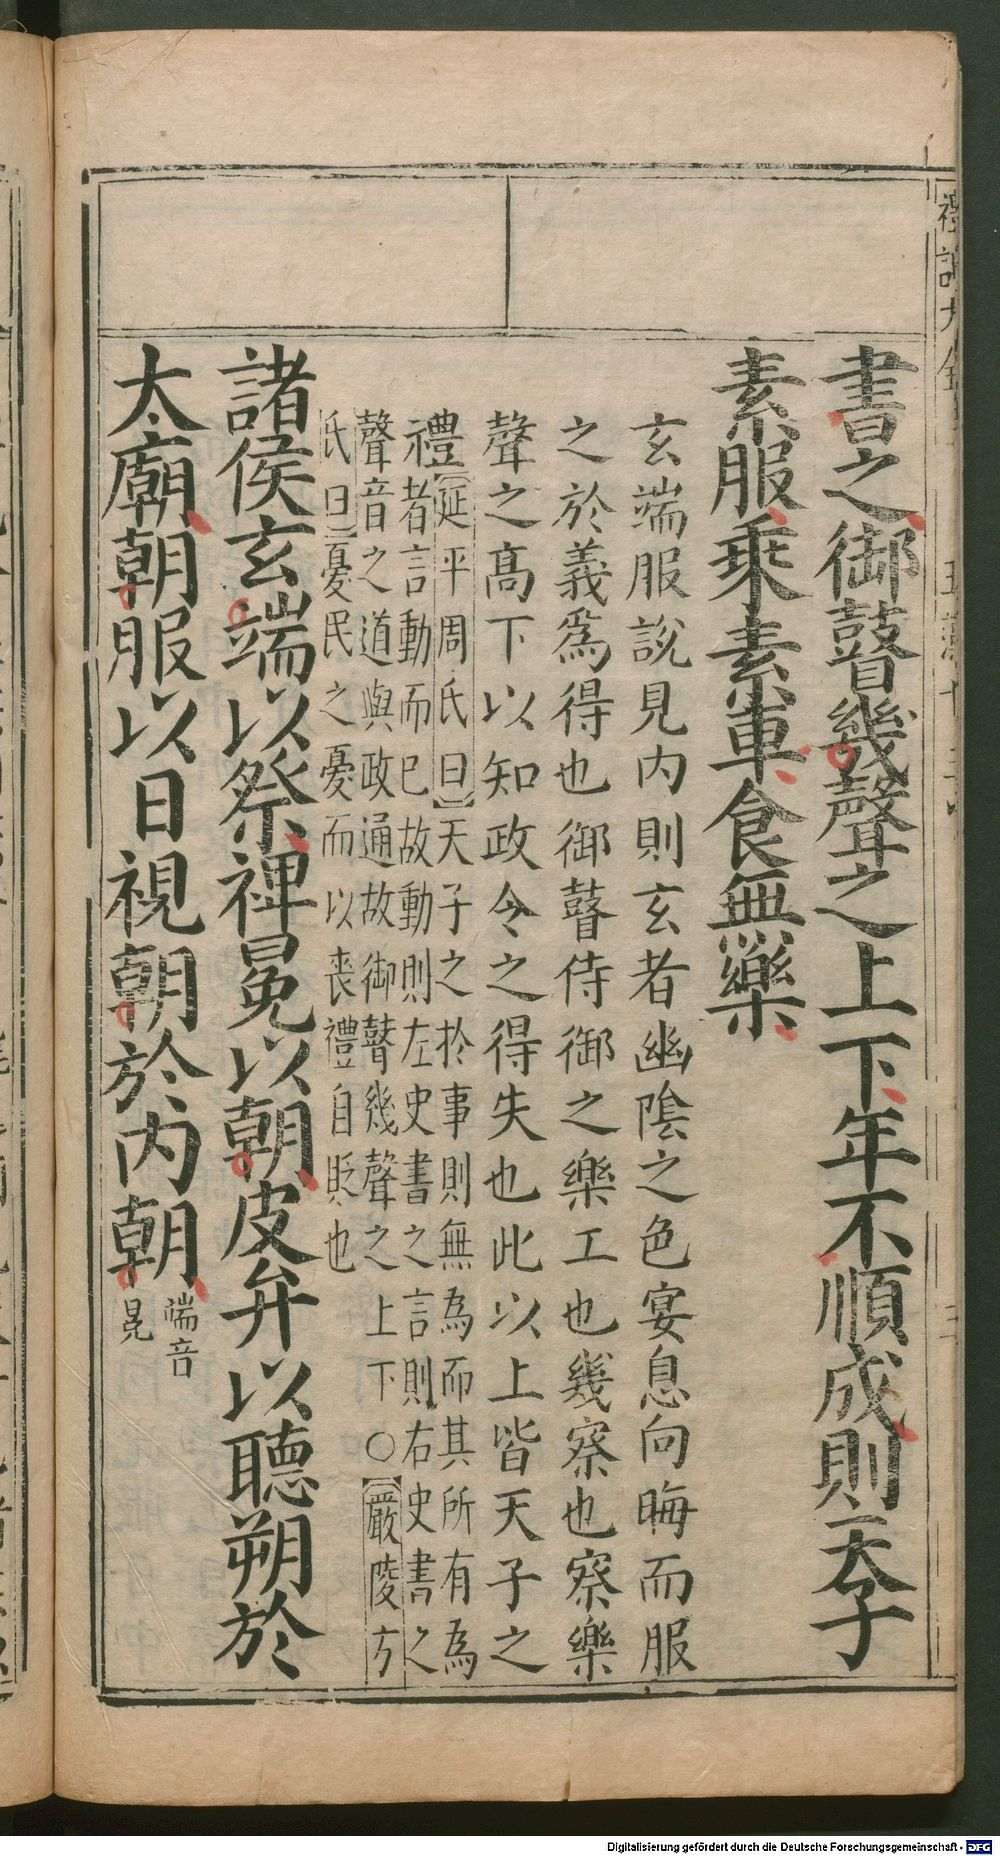 書之御瞽幾聲之上下年不順成則天子
素服乘素車食無樂
玄端服說見内則玄者幽陰之色宴息向晦而服
之於義爲得也御瞽侍御之樂工也幾察也察樂
聲之髙下以知政令之得失也此以上皆天子之
禮
延平周氏曰天子之於事則無為而其所有為
者言動而已故動則左史書之言則右史書之
聲音之道與政通故御瞽幾聲之上下○嚴陵方
氏曰憂民之憂而以喪禮自貶也
諸侯玄端以祭裨冕以朝皮弁以聽朔於
太廟朝服以日視朝於内朝
端音
冕
Digitalisierung gefördert durch die Deutsche Forschungsgemeinschaft - DFG